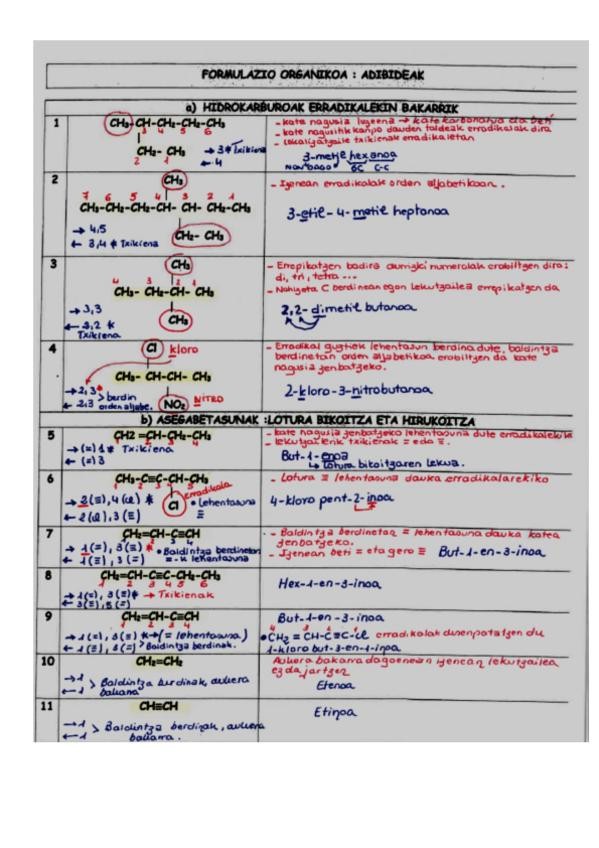 FORMULAZIO ORGANIKOA : ADIBIDEAK
a) HIDROKARBUROAK ERRADIKALEKIN BAKARRIK
1
CH₃-CH-CH₂-CH₂-CH₃
3 4 5 6
CH₂- CH₃
2 1
→ 3 * Txikiena
← 4
- kate nagusia luzeena → kate karbonatua da beti
- kate nagusitik kanpo dauden taldeak erradikalak dira
- lokalizatzaile txikienak erradikaletan
3-metil hexanoa
6C C-C
2
CH₃
7 6 5 4 3 2 1
CH₃-CH₂-CH₂-CH- CH -CH₂-CH₃
CH₂- CH₃
→ 4,5
← 3,4 * Txikiena
- Izenean erradikalak orden alfabetikoan.
3-etil-4-metil heptanoa
3
CH₃
4 3 2 1
CH₃- CH₂-CH- CH₃
CH₃
→ 3,3
← 2,2 *
Txikiena
- Errepikatzen badira aurrizki numeralak erabiltzen dira:
di, tri, tetra ...
- Nahizeta C berdinean egon lekutzailea errepikatzen da
2,2-dimetil butanoa
4
Cl kloro
CH₃- CH-CH- CH₃
NO₂ NITRO
→ 2,3 *
← 2,3 > berdin
orden alfabe.
- Erradikal guztiek lehentasun berdina dute, baldintza
berdinetan orden alfabetikoa erabiltzen da kate
nagusia zenbatzeko.
2-kloro-3-nitrobutanoa
b) ASEGABETASUNAK :LOTURA BIKOITZA ETA HIRUKOITZA
5
CH2 =CH-CH₂-CH₃
1 2 3 4
→ (=) 1 * Txikiena
← (=) 3
- kate nagusia zenbatzeko lehentasuna dute erradikalekiko
- lekutzailerik txikienak = edo ≡.
But-1-enoa
↳ Lotura bikoitzaren lekua.
6
CH₃-C≡C-CH-CH₃
1 2 3 4 5
Cl
erradikala
→ 2(≡), 4 (Cl) *
• Lehentasuna
≡
← 2 (Cl), 3 (≡)
- Lotura ≡ lehentasuna dauka erradikalarekiko
4-kloro pent-2-inoa
7
CH₂=CH-CH-C≡CH
→ 1(=), 3(≡) *
← 1(≡), 3(=)
• Baldintza berdinetan
= -k lehentasuna
- Baldintza berdinetan = lehentasuna dauka katea
zenbatzeko.
- Izenean beti = eta gero ≡ But-1-en-3-inoa
8
CH₂=CH-C≡C-CH₂-CH₃
1 2 3 4 5 6
→ 1(=), 3(≡) * → Txikienak
← 3(≡), 5(=)
Hex-1-en-3-inoa
9
CH₂=CH-C≡CH
1 2 3 4
→ 1(=), 3(≡) * → (= lehentasuna)
← 1(≡), 3(=) > Baldintza berdinak.
But-1-en-3-inoa
• CH₂ = CH-C≡C-Cl erradikalak
1-kloro but-3-en-1-inoa
10
CH₂=CH₂
→ 1
← 1 > Baldintza berdinak, aukera
bakarra
Aukera bakarra dagoenean izenean lekutzailea
ez da jartzen
Etenoa
11
CH≡CH
→ 1
← 1 > Baldintza berdinak, aukera
bakarra.
Etinoa